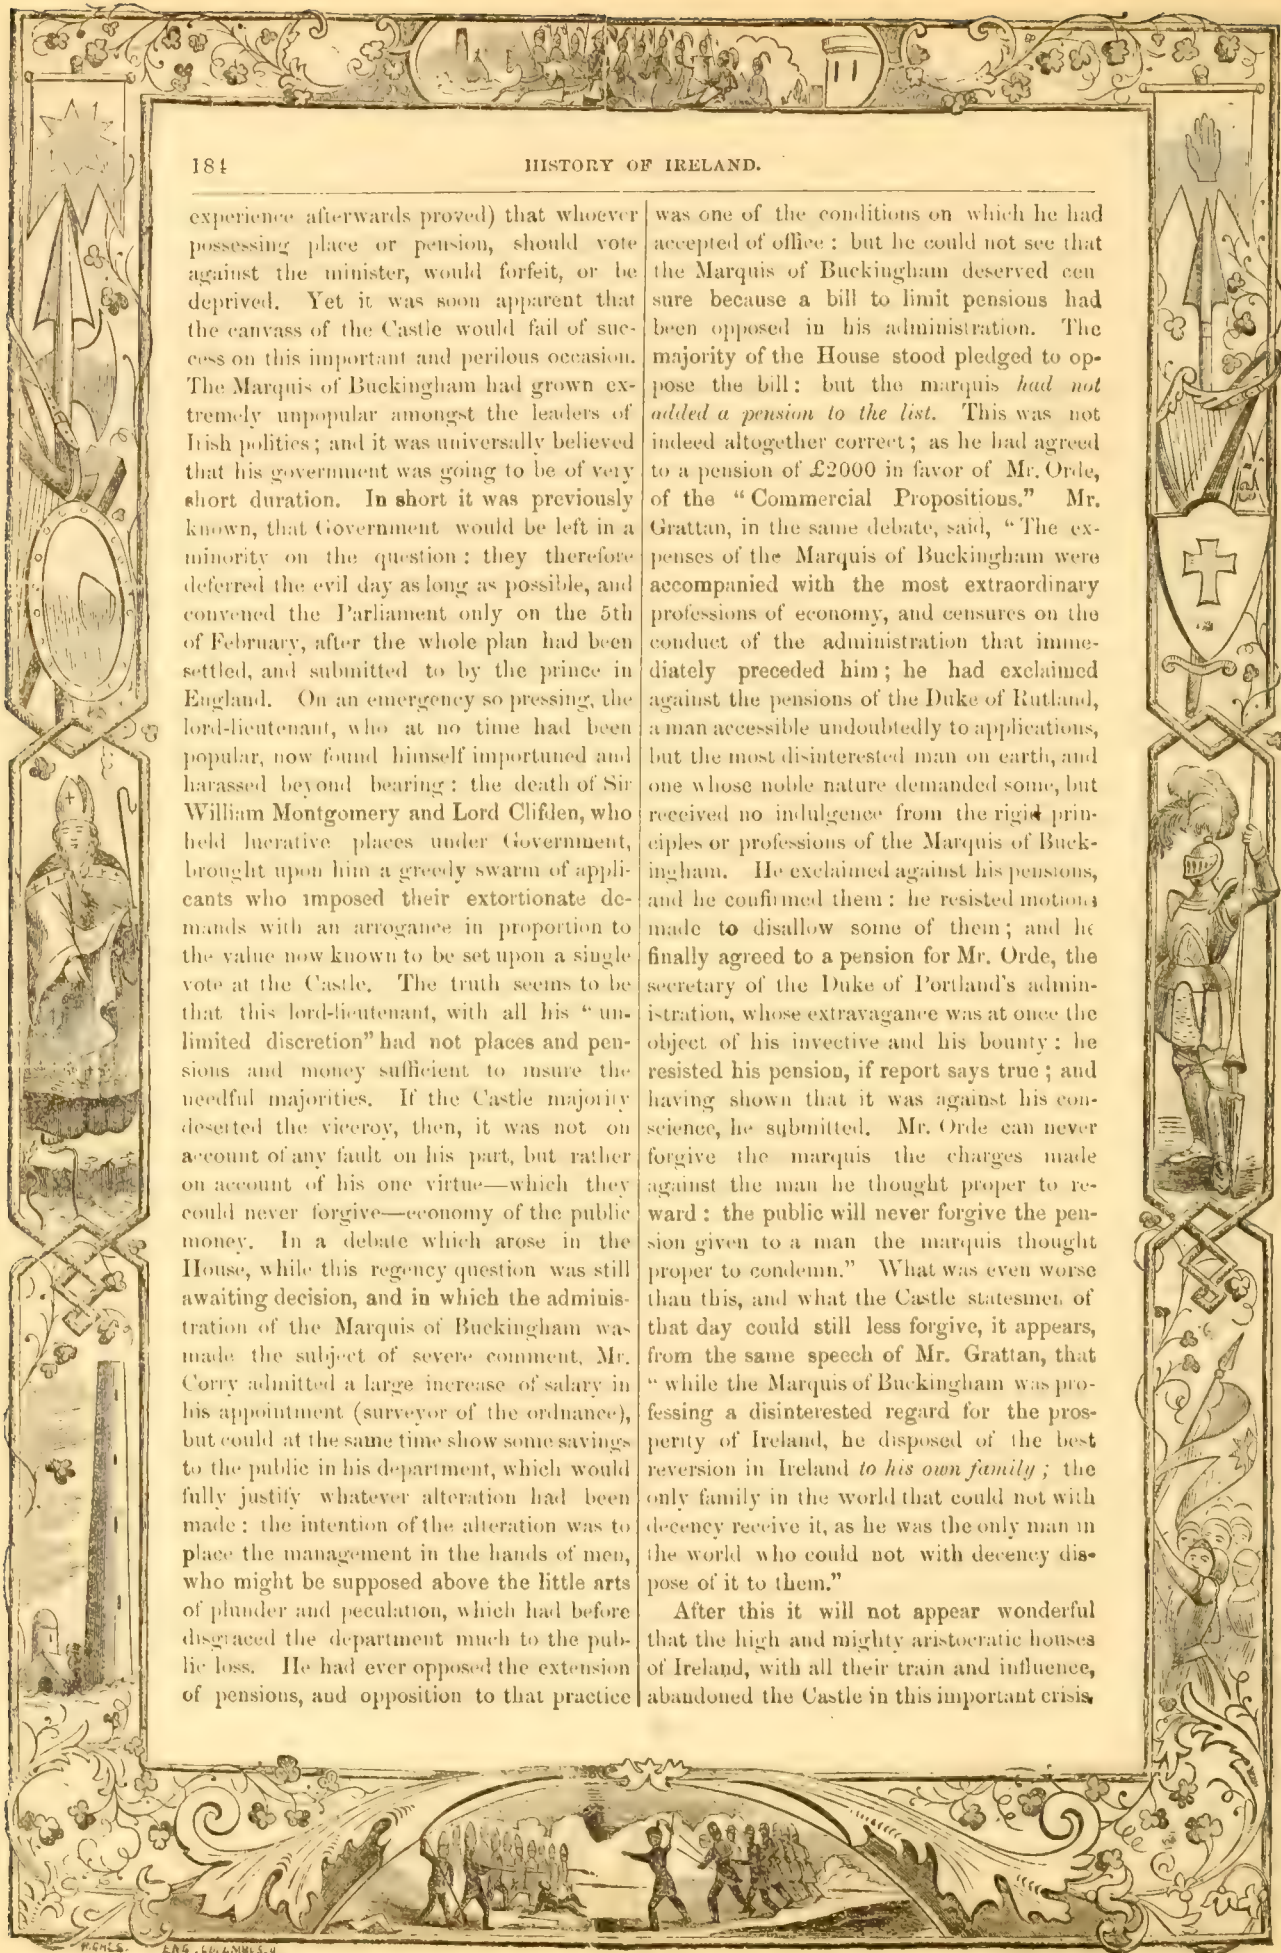 184
HISTORY OF IRELAND.
experience afterwards proved) that whoever
possessing place or pension, should vote
against the minister, would forfeit, or be
deprived. Yet it was soon apparent that
the canvass of the Castle would fail of suc-
cess on this important and perilous occasion.
The Marquis of Buckingham had grown ex-
tremely unpopular amongst the leaders of
Irish politics; and it was universally believed
that his government was going to be of very
short duration. In short it was previously
known, that Government would be left in a
minority on the question: they therefore
deferred the evil day as long as possible, and
convened the Parliament only on the 5th
of February, after the whole plan had been
settled, and submitted to by the prince in
England. On an emergency so pressing, the
lord-lieutenant, who at no time had been
popular, now found himself importuned and
harassed beyond bearing: the death of Sir
William Montgomery and Lord Clifden, who
held lucrative places under Government,
brought upon him a greedy swarm of appli-
cants who imposed their extortionate de-
mands with an arrogance in proportion to
the value now known to be set upon a single
vote at the Castle. The truth seems to be
that this lord-lieutenant, with all his "un-
limited discretion" had not places and pen-
sions and money sufficient to insure the
needful majorities. If the Castle majority
deserted the viceroy, then, it was not on
account of any fault on his part, but rather
on account of his one virtue—which they
could never forgive—economy of the public
money. In a debate which arose in the
House, while this regency question was still
awaiting decision, and in which the adminis-
tration of the Marquis of Buckingham was
made the subject of severe comment, Mr.
Corry admitted a large increase of salary in
his appointment (surveyor of the ordnance),
but could at the same time show some savings
to the public in his department, which would
fully justify whatever alteration had been
made: the intention of the alteration was to
place the management in the hands of men,
who might be supposed above the little arts
of plunder and peculation, which had before
disgraced the department much to the pub-
lic loss. He had ever opposed the extension
of pensions, and opposition to that practice
was one of the conditions on which he had
accepted of office: but he could not see that
the Marquis of Buckingham deserved cen
sure because a bill to limit pensions had
been opposed in his administration. The
majority of the House stood pledged to op-
pose the bill: but the marquis had not
added a pension to the list. This was not
indeed altogether correct; as he had agreed
to a pension of £2000 in favor of Mr. Orde,
of the "Commercial Propositions." Mr.
Grattan, in the same debate, said, "The ex-
penses of the Marquis of Buckingham were
accompanied with the most extraordinary
professions of economy, and censures on the
conduct of the administration that imme-
diately preceded him; he had exclaimed
against the pensions of the Duke of Rutland,
a man accessible undoubtedly to applications,
but the most disinterested man on earth, and
one whose noble nature demanded some, but
received no indulgence from the rigid prin-
ciples or professions of the Marquis of Buck-
ingham. He exclaimed against his pensions,
and he confirmed them: he resisted motions
made to disallow some of them; and he
finally agreed to a pension for Mr. Orde, the
secretary of the Duke of Portland's admin-
istration, whose extravagance was at once the
object of his invective and his bounty: he
resisted his pension, if report says true; and
having shown that it was against his con-
science, he submitted. Mr. Orde can never
forgive the marquis the charges made
against the man he thought proper to re-
ward: the public will never forgive the pen-
sion given to a man the marquis thought
proper to condemn." What was even worse
than this, and what the Castle statesmen of
that day could still less forgive, it appears,
from the same speech of Mr. Grattan, that
"while the Marquis of Buckingham was pro-
fessing a disinterested regard for the pros-
perity of Ireland, he disposed of the best
reversion in Ireland to his own family; the
only family in the world that could not with
decency receive it, as he was the only man in
the world who could not with decency dis-
pose of it to them."
After this it will not appear wonderful
that the high and mighty aristocratic houses
of Ireland, with all their train and influence,
abandoned the Castle in this important crisis,